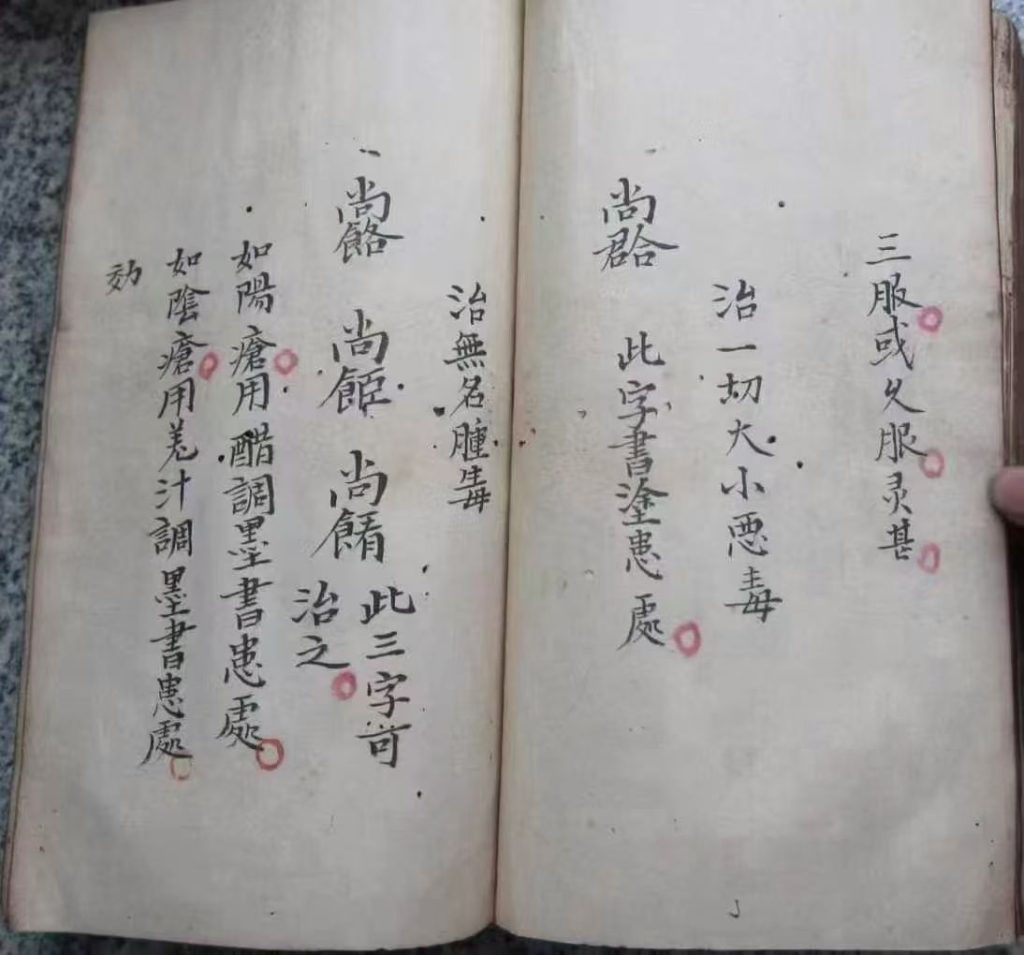 三服或久服灵甚
治一切大小恶毒
此字書塗患處
治無名腫毒
此三字可
治之
如陽瘡用醋調墨書患處
如陰瘡用羌汁調墨書患處
効